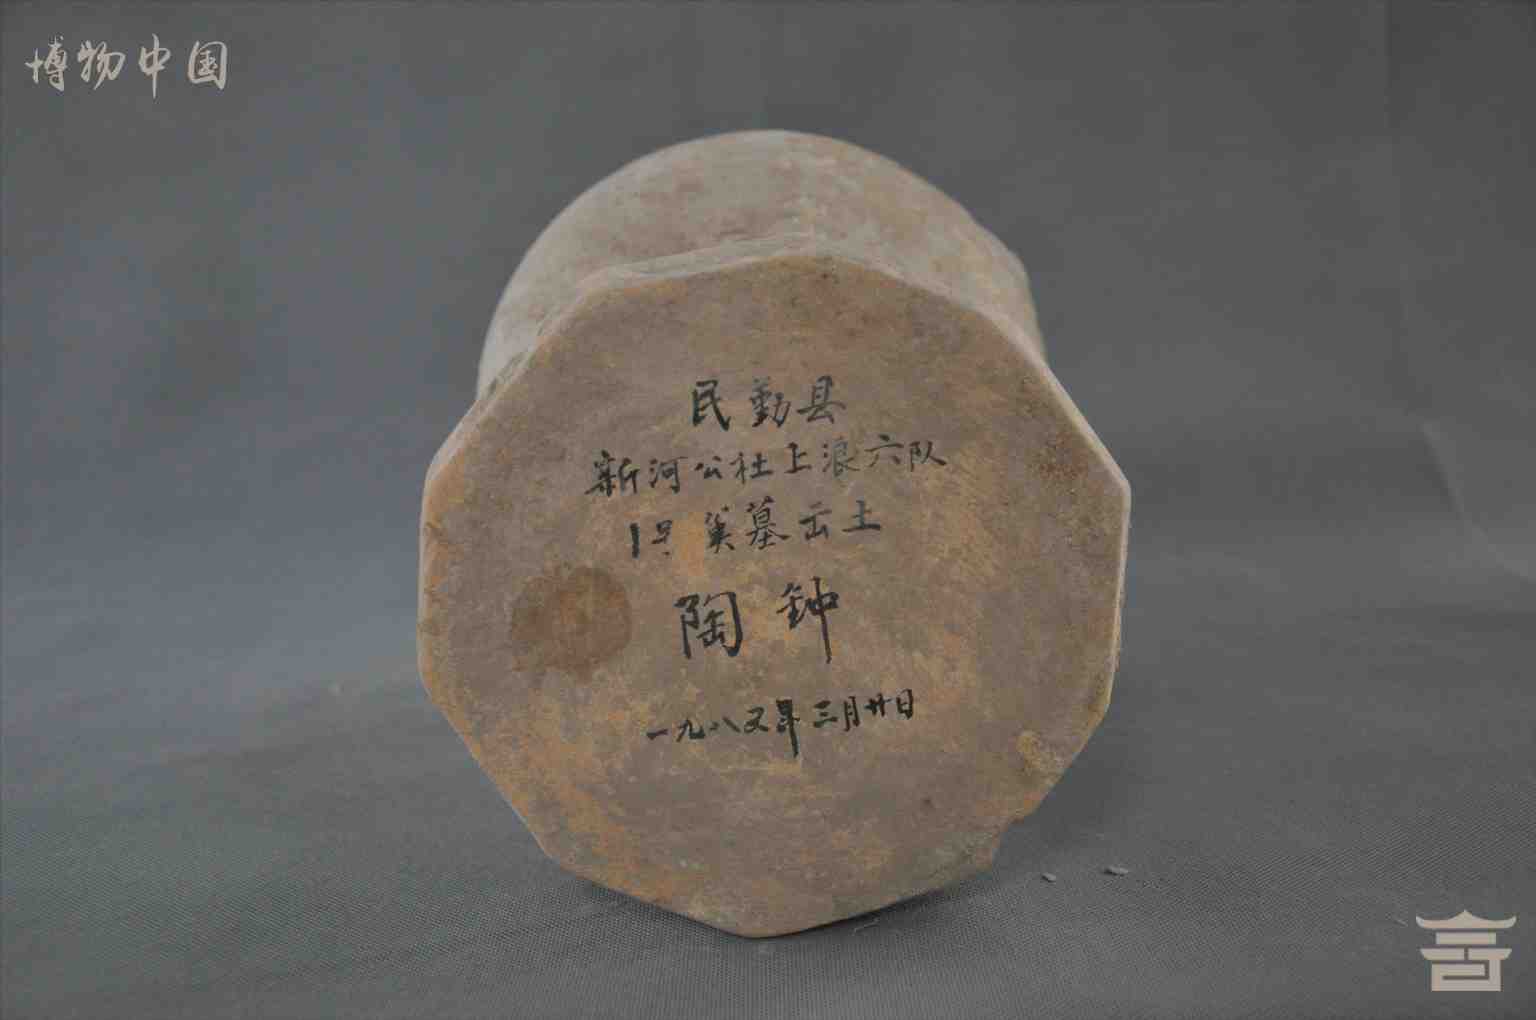 博物中国
民勤县
新河公社上浪六队
1号 汉墓出土
陶钟
一九八又年三月廿日